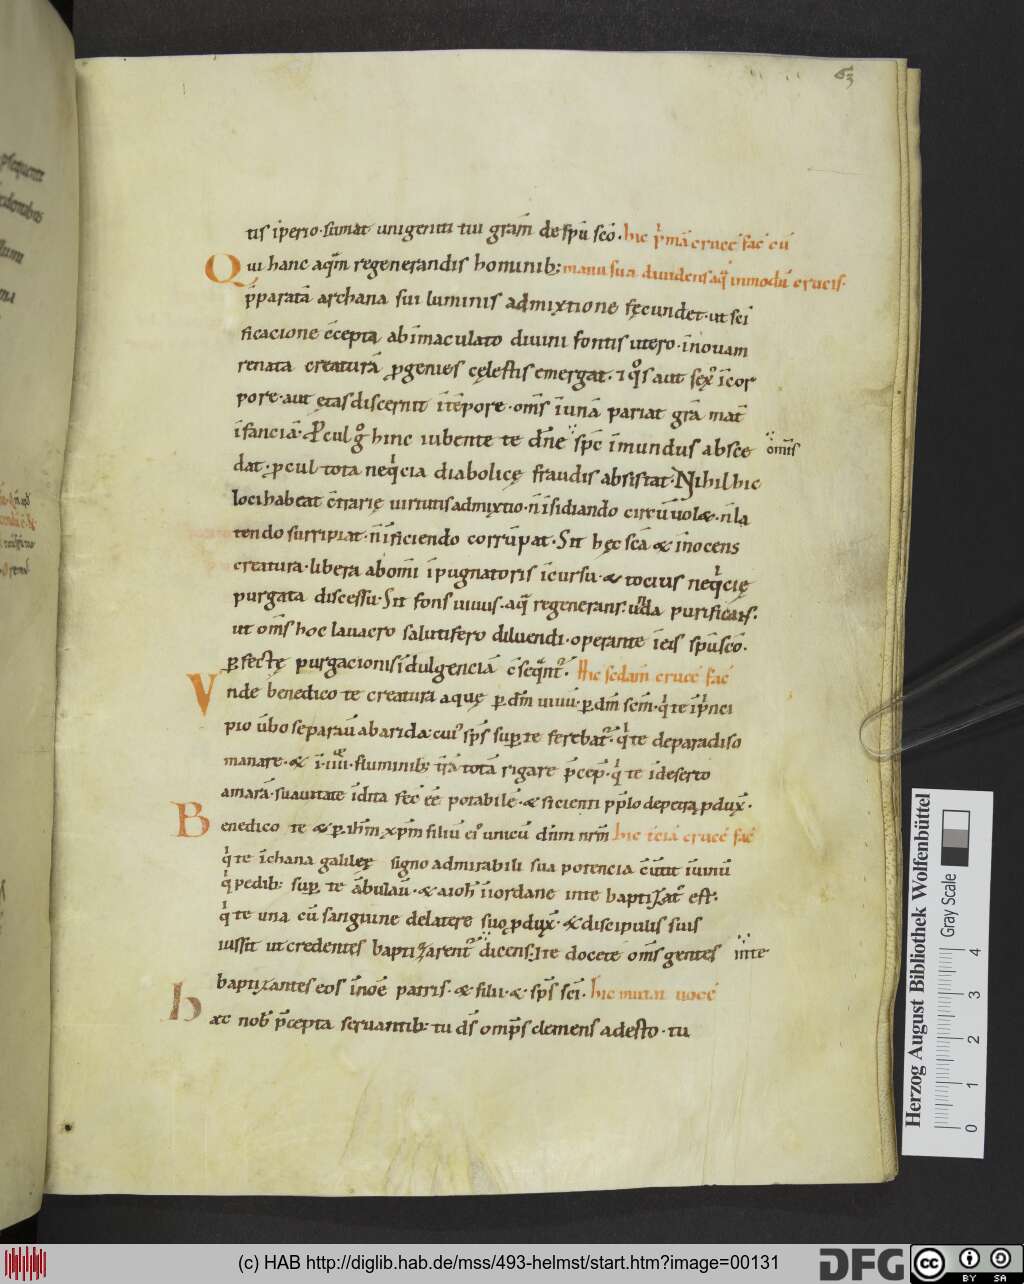 63
tis īperio. sumat unigeniti tui grām de spū scō. hic p̄mā crucē fac cū
Qui hanc aq̄m regenerandis hominib; manu sua dividens aq̄ in modū crucis.
p̄paratā archana sui luminis admixtione fęcundet. ut sci
ficacione c̄cepta ab īmaculato divini fontis utero. ī novam
renata creaturā ꝓgenies cęlestis emergat. ⁊ qͦs aut sex᾽ ī cor
pore. aut ętas discernit ī tēpore. om̄s ī unā pariat grā mat̄
īfanciā. Procul gͦ hinc iubente te dn̄e sp̄c īmundus absce om̄is
dat. ꝓcul tota neqͥcia diabolicę fraudis absistat. Nihil hic
loci habeat c̄trarię uirtutis admixtio. n̄ īsidiando circūuolæ. n̄ la
tendo surripiat. n̄ īficiendo corrūpat. Sit hęc scā & īnocens
creatura. libera ab om̄i īpugnatoris īcursu. & tocius neqͥcię
purgata discessu. Sit fons uiuus. aq̄ regenerans. uͥda purificās.
ut om̄s hoc lavacro salutifero diluendi. operante ī eis spū scō.
ꝑfectę purgacionis īdulgenciā c̄seqͣnt᾽. Hic sc̄dam crucē fac
Vnde benedico te creatura aquę ꝑ dm̄ uiuū. ꝑ dm̄ scm̄. qͥ te ī pͥnci
pio ūbo separaū ab arida. cui᾽ sp̄s suꝑ te ferebat᾽. qͥ te de paradiso
manare. & ī .iiii. fluminib; t̄rā totā rigare p̄cep̄. qͥ te ī deserto
amarā. suauitate īdita fec̄ ēē potabilē. & sicienti pp̄lo de petra ꝓdux̄.
Benedico te & ꝑ ih̄m xp̄m filiū ei᾽ unicū dn̄m nr̄m hic t̄ciā crucē fac̄
qͥ te ī chana galilęę signo admirabili sua potencia c̄ūtit ī uinū
qͥ pedib; suꝑ te ābulaū. & a ioh̄ ī iordane in te baptizat᾽ est.
qͥ te una cū sanguine de latere suo ꝓdux̄. & discipulis suis
iussit ut credentes baptizarent᾽ dicens. Ite docete om̄s gentes in te
baptizantes eos ī noē patris. & filii. & sp̄s sc̄i. hic muta uocē
hæc nob᾽ p̄cepta seruantib; tu ds̄ omp̄s clemens adesto. tu
Herzog August Bibliothek Wolfenbüttel
Gray Scale
0 1 2 3 4
(c) HAB http://diglib.hab.de/mss/493-helmst/start.htm?image=00131
DFG
cc BY SA